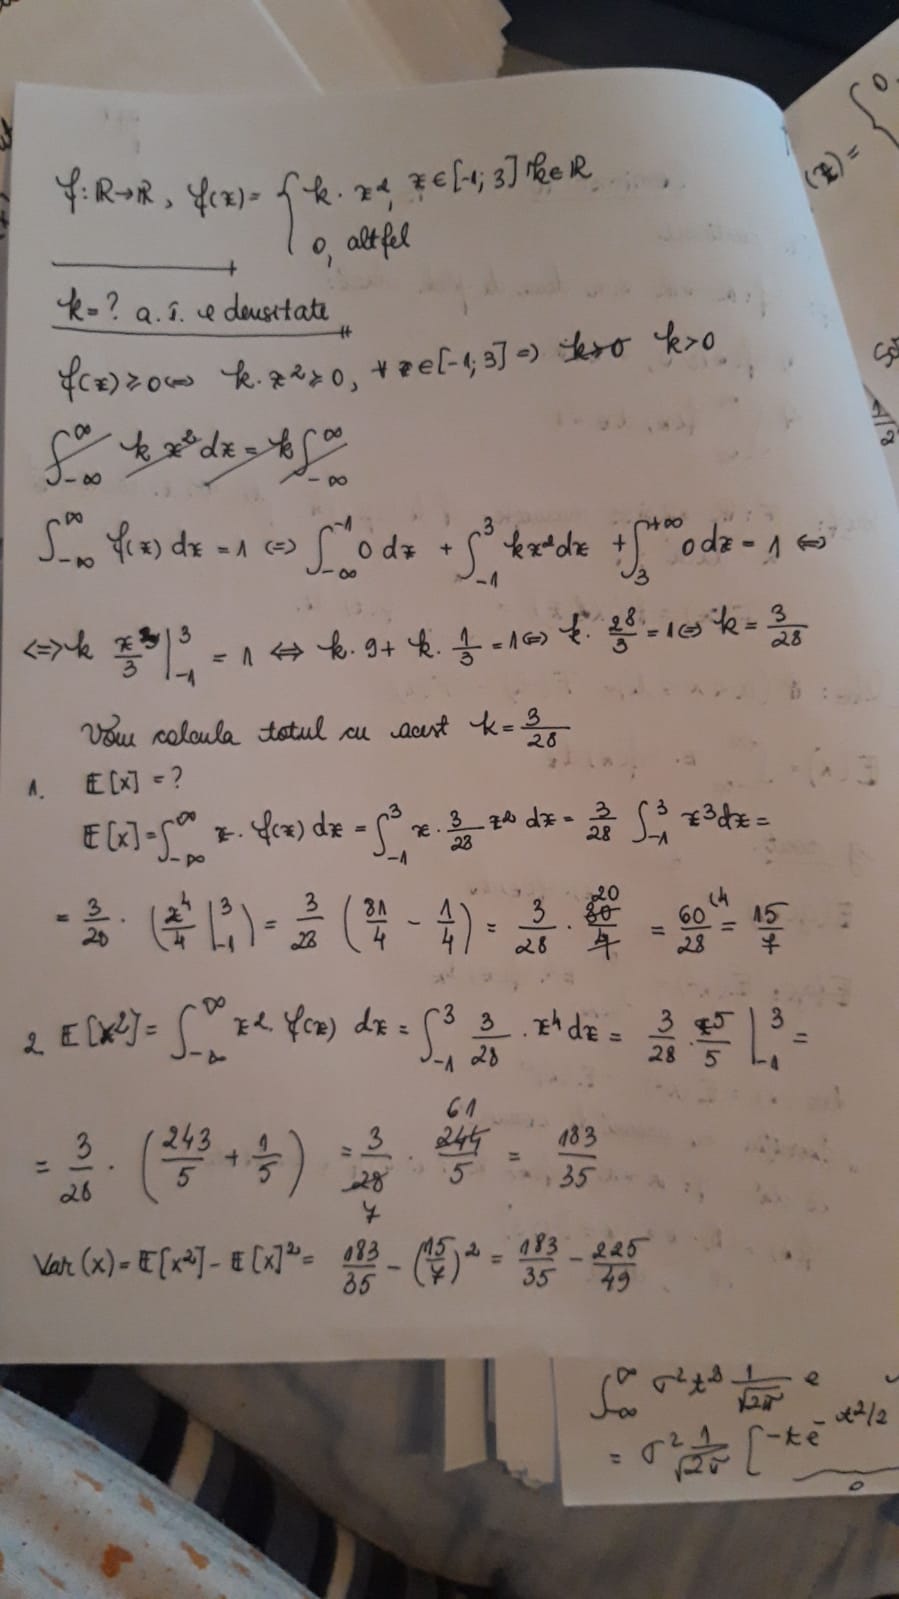 f: ℝ→ℝ, f(x) = { k · x², x ∈ [-1; 3] k ∈ ℝ
0, altfel
k = ? a. î. e densitate
f(x) ≥ 0 <=> k · x² ≥ 0, ∀ x ∈ [-1; 3] => k>0 k > 0
∫_{-∞}^{∞} k x² dx = k ∫_{-∞}^{∞}
∫_{-∞}^{∞} f(x) dx = 1 <=> ∫_{-∞}^{-1} 0 dx + ∫_{-1}^{3} kx² dx + ∫_{3}^{+∞} 0 dx = 1 <=>
<=> k x³/3 |_{-1}^{3} = 1 <=> k · 9 + k · 1/3 = 1 <=> k · 28/3 = 1 <=> k = 3/28
Vom calcula totul cu acest k = 3/28
1. E[x] = ?
E[x] = ∫_{-∞}^{∞} x · f(x) dx = ∫_{-1}^{3} x · 3/28 x² dx = 3/28 ∫_{-1}^{3} x³ dx =
= 3/28 · (x⁴/4 |_{-1}^{3}) = 3/28 (81/4 - 1/4) = 3/28 · 80/4 20 = 60/28 (4 = 15/7
2. E[x²] = ∫_{-∞}^{∞} x² · f(x) dx = ∫_{-1}^{3} 3/28 · x⁴ dx = 3/28 · x⁵/5 |_{-1}^{3} =
= 3/28 · (243/5 + 1/5) = 3/28 7 · 244/5 61 = 183/35
Var(x) = E[x²] - E[x]² = 183/35 - (15/7)² = 183/35 - 225/49
(x) = { 0,
∫_{-∞}^{∞} σ² t² 1/√2π e
= σ² 1/√2π [-t e^{-t²/2}
0